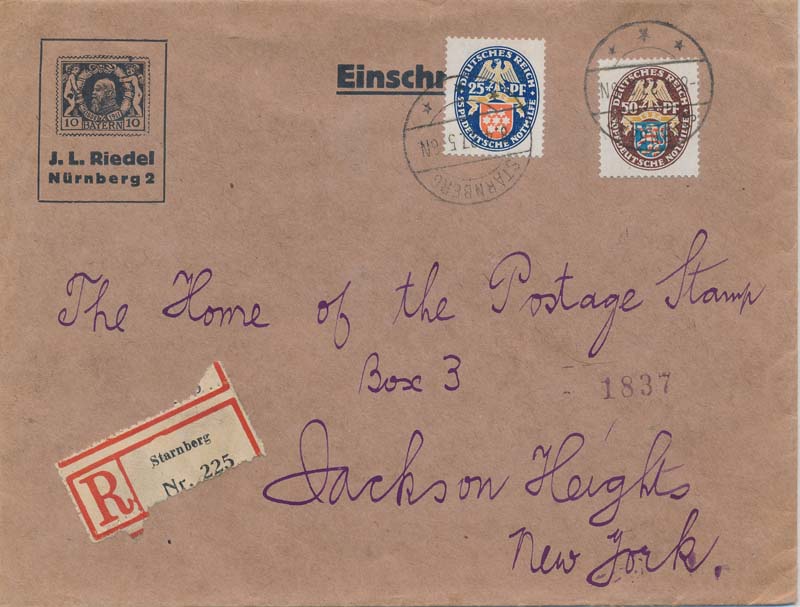 10 BAYERN 10
J. L. Riedel
Nürnberg 2
Einschr
DEUTSCHES REICH
25 PF
DEUTSCHE NOTHILFE
STARNBERG
DEUTSCHES REICH
50 PF
DEUTSCHE NOTHILFE
The Home of the Postage Stamp
Box 3
1837
Jackson Heights
New York.
R
Starnberg
Nr. 225